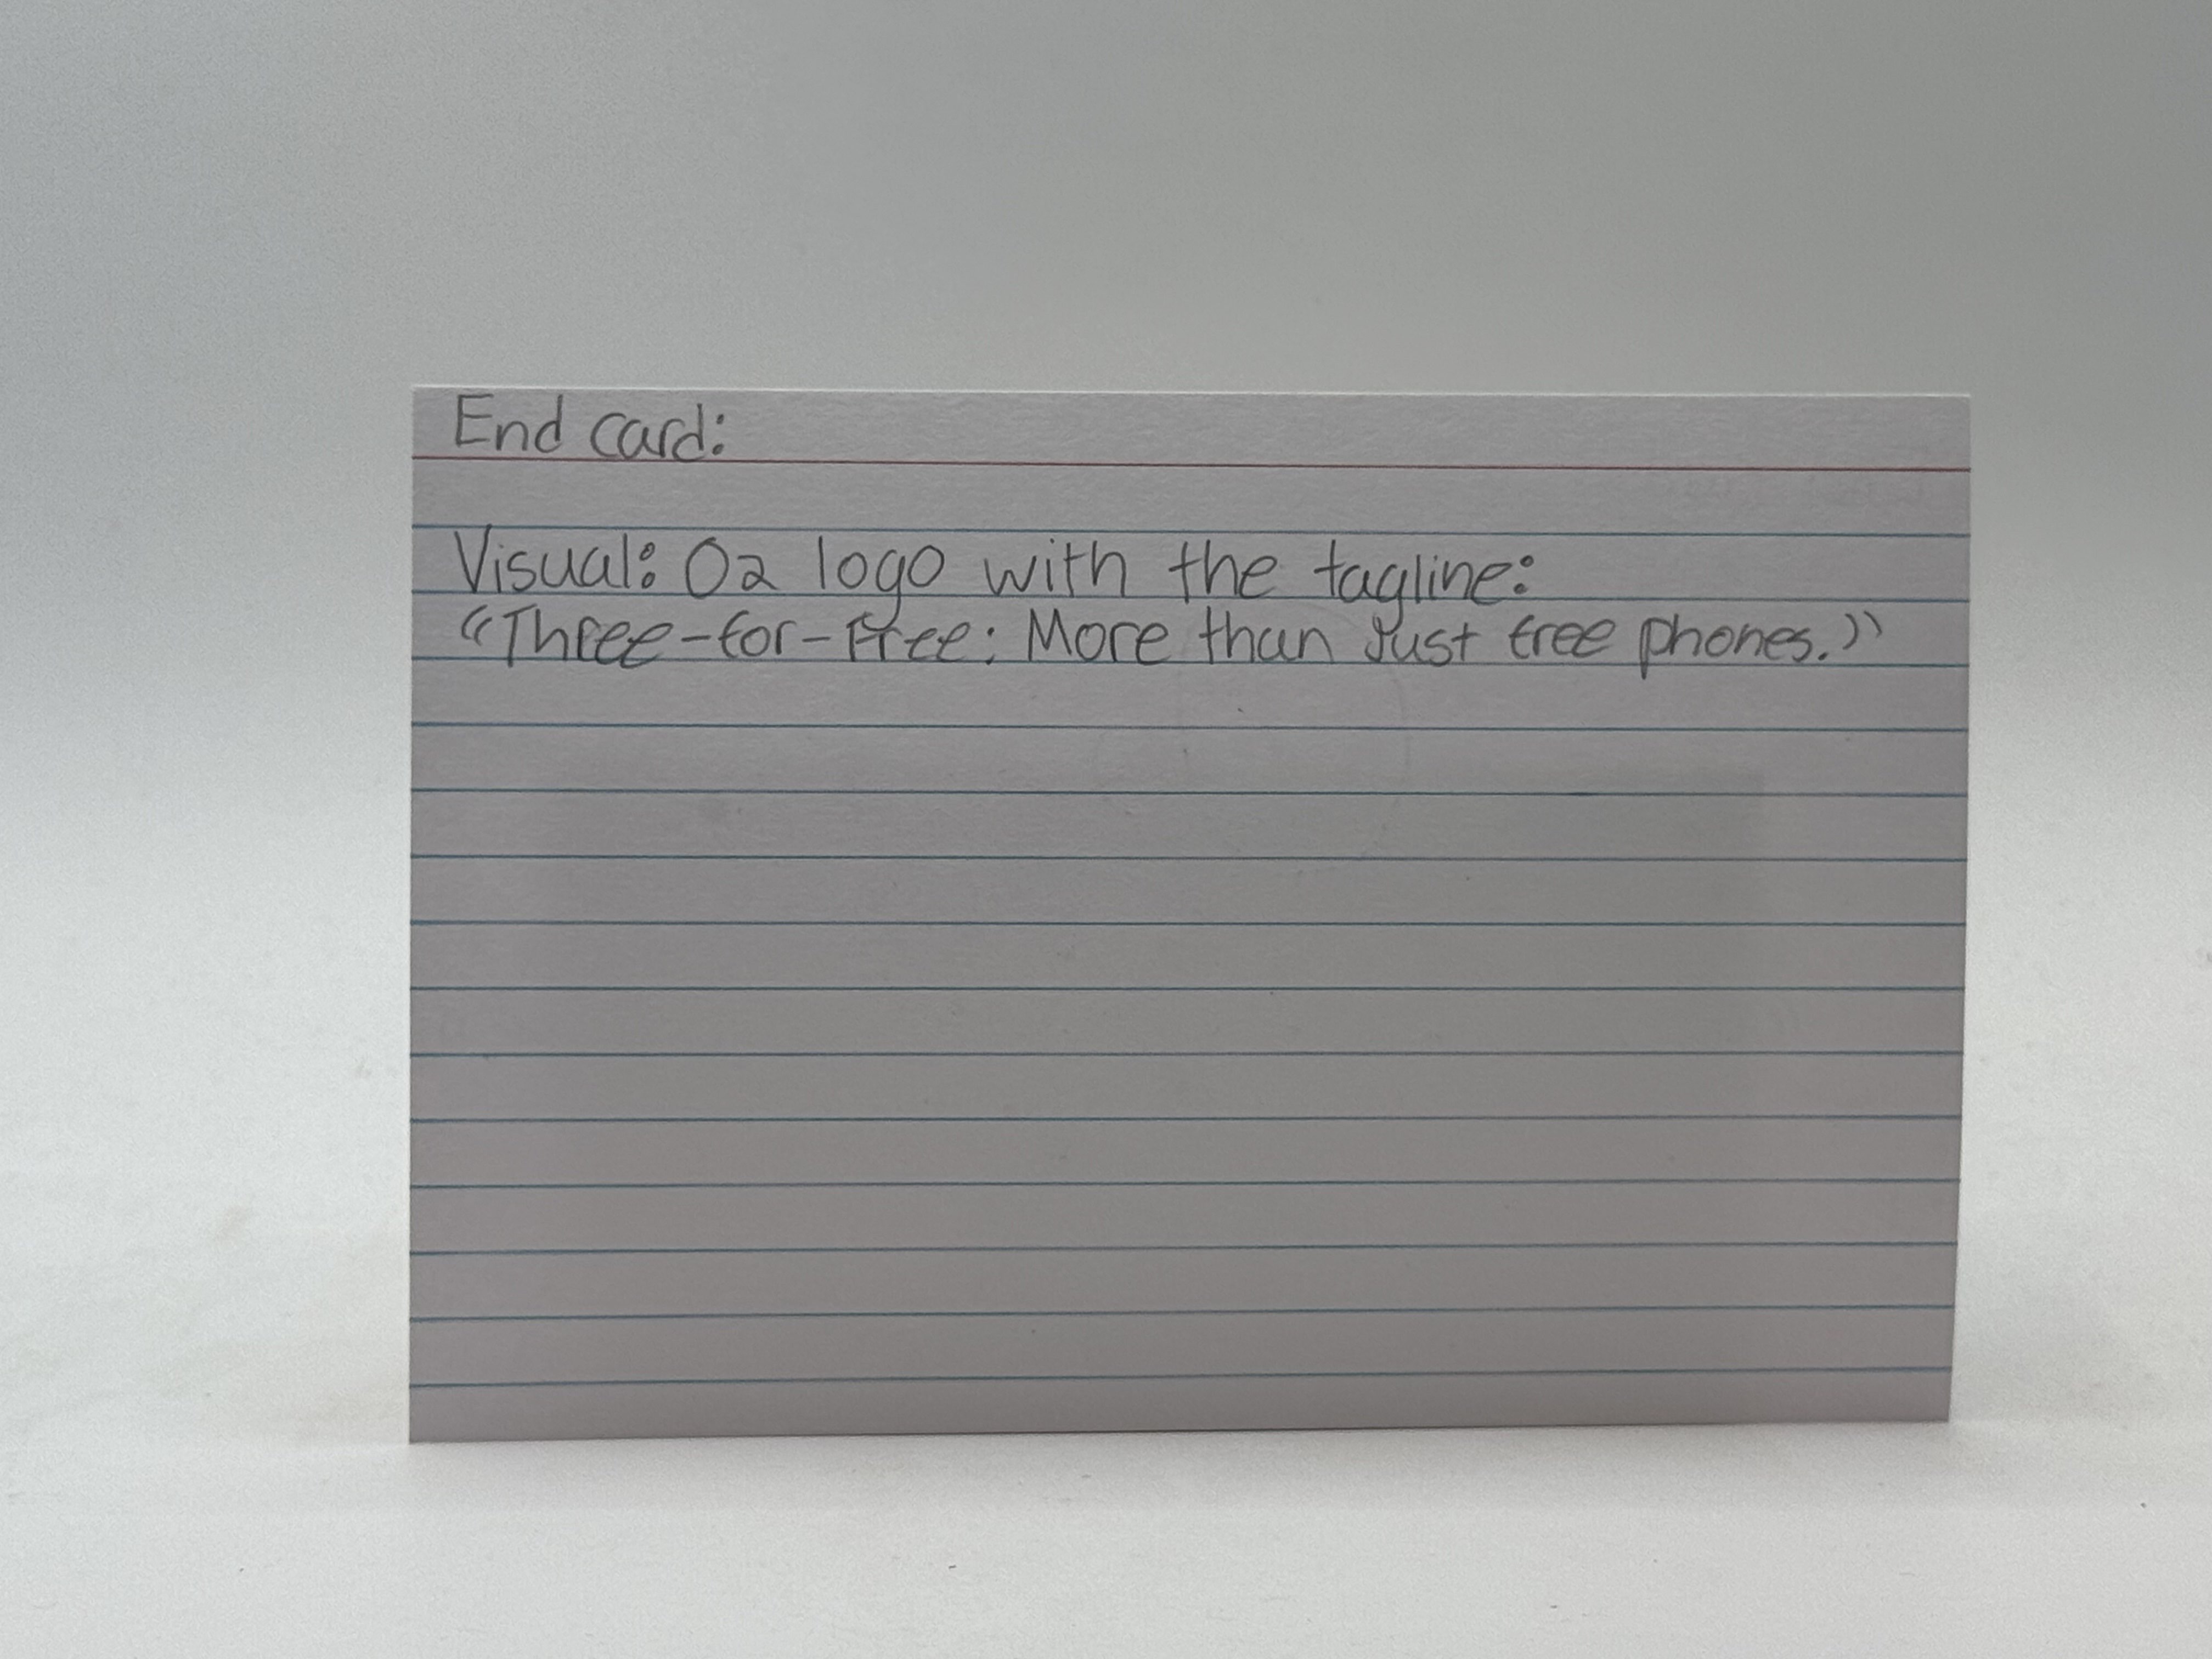 End card:
Visual: O2 logo with the tagline:
“Three-for-Free: More than Just free phones.”